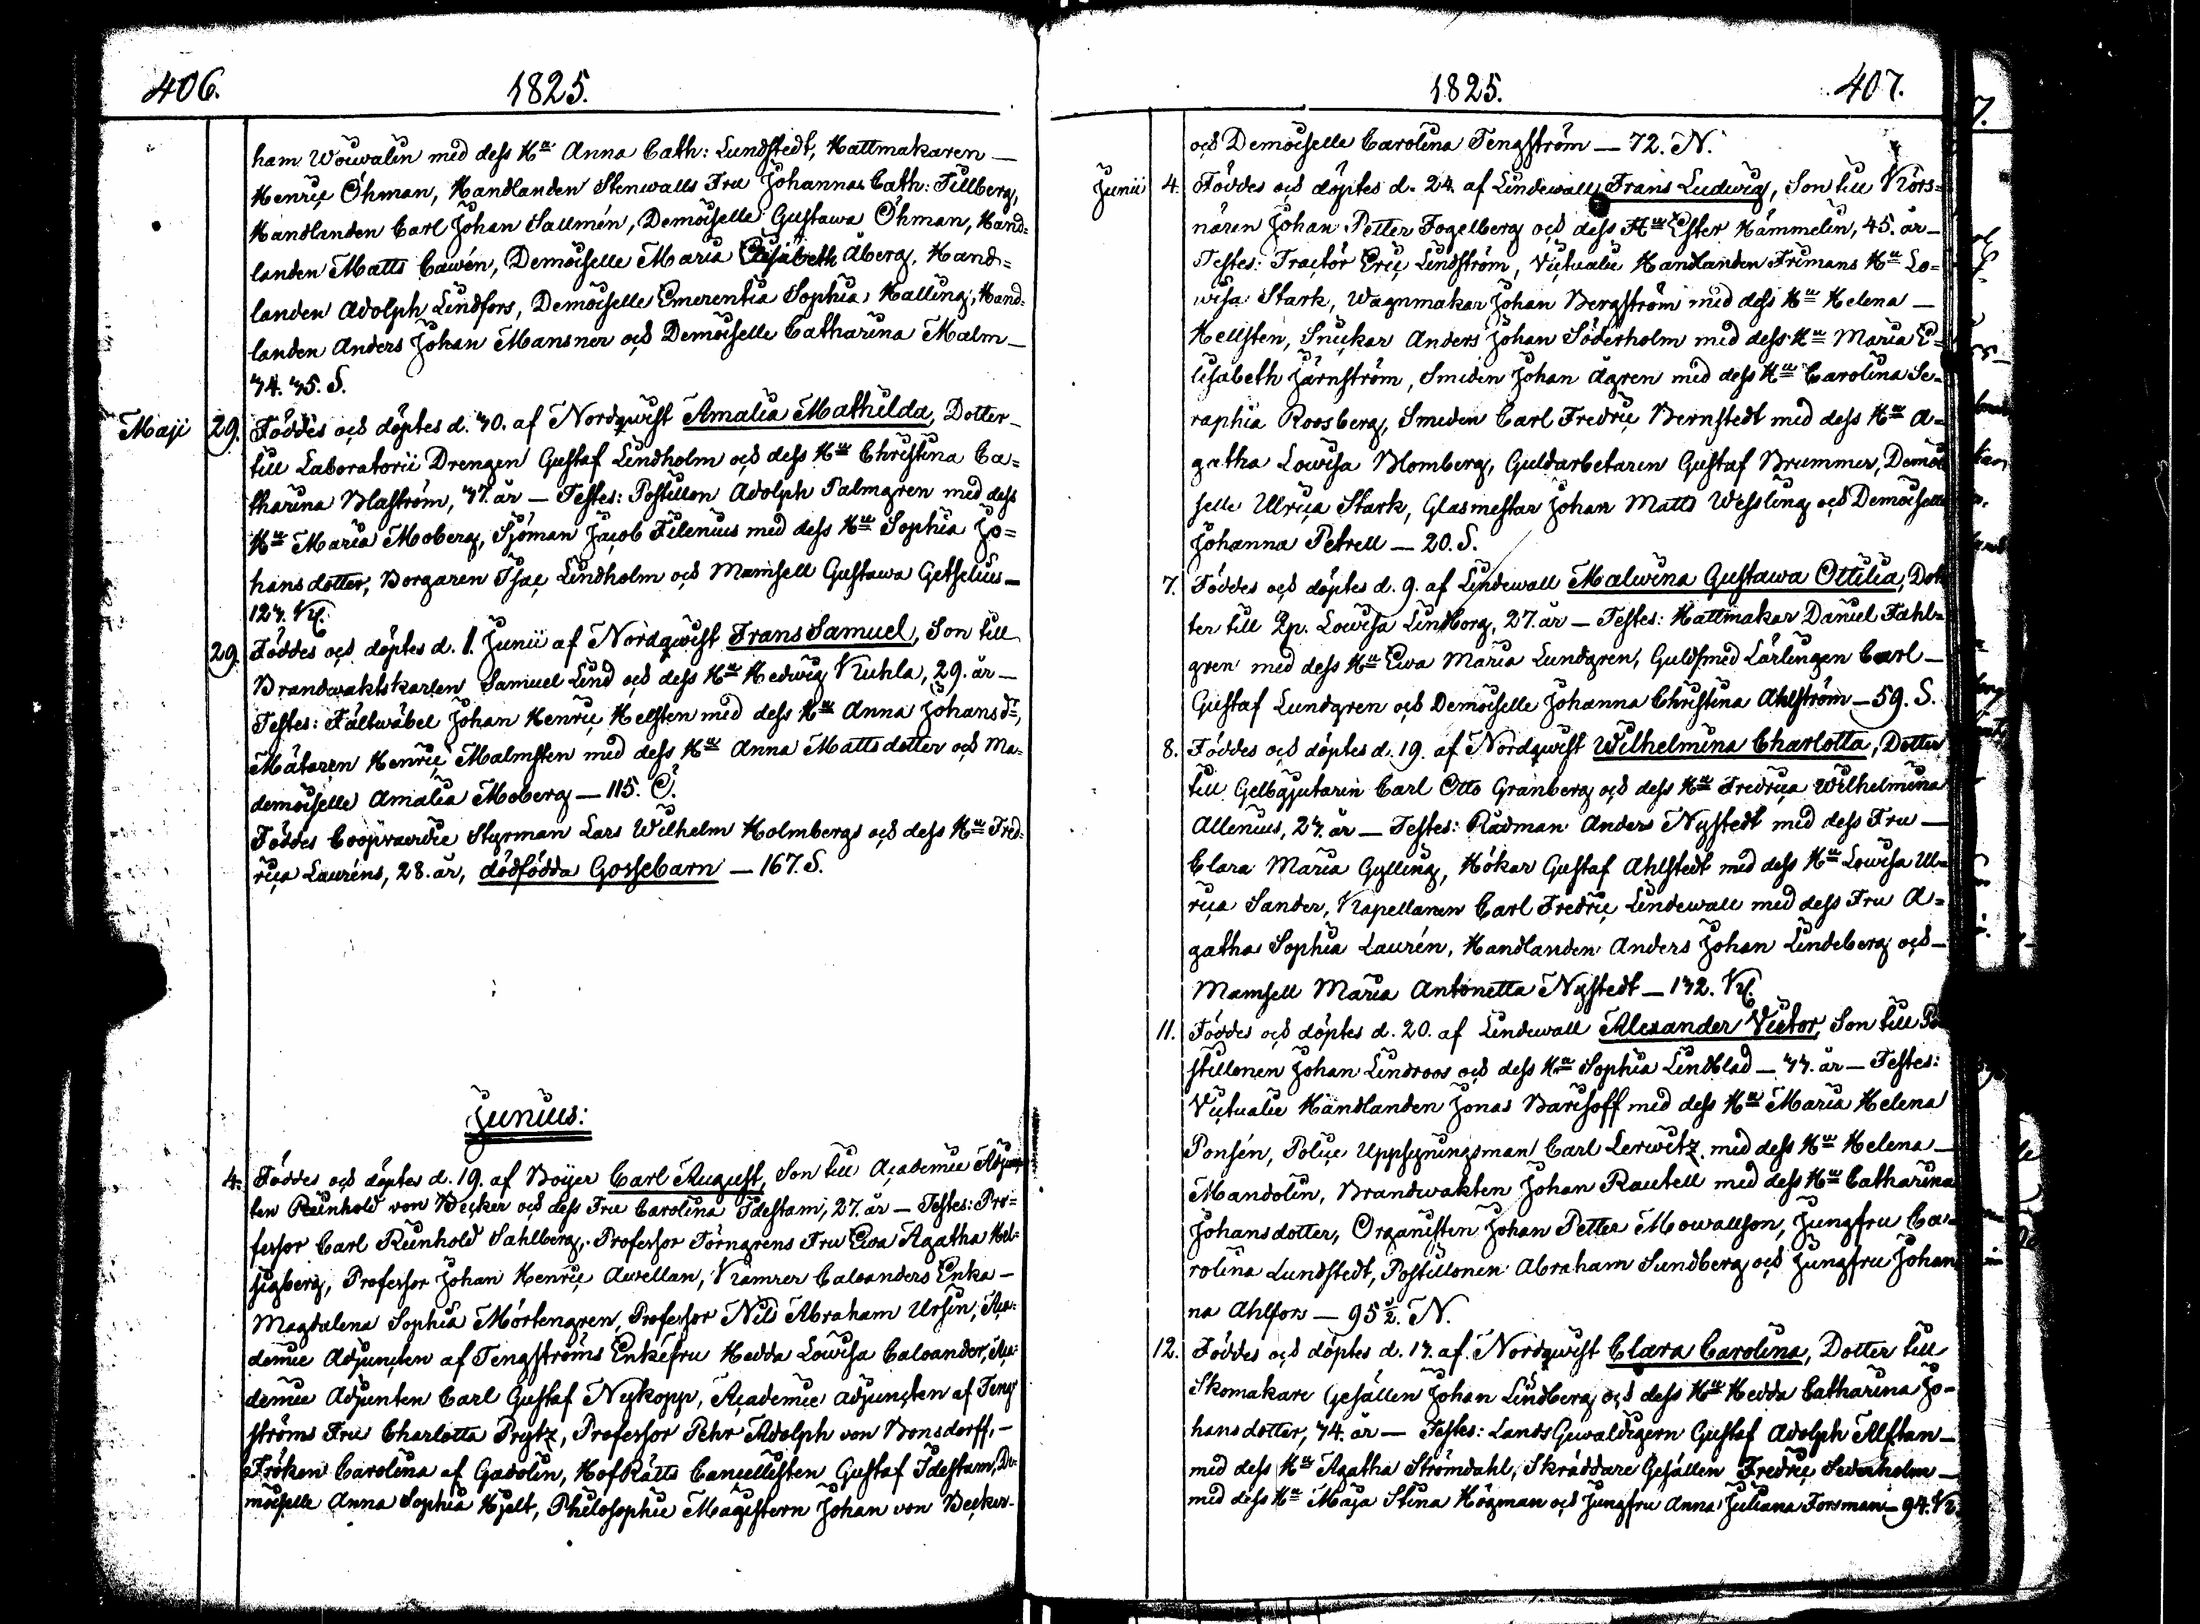 406.
1825.
ham Wouvalin med dess Hu Anna Cath: Lundstedt, Hattmakaren —
Henric Öhman, Handlanden Stenwalls Fru Johanna Cath: Tillberg,
Handlanden Carl Johan Sallmén, Demoiselle Gustawa Öhman, Hand=
landen Matts Cawén, Demoiselle Maria Elisabeth Åberg, Hand=
landen Adolph Lindfors, Demoiselle Emerentia Sophia Halling, Hand=
landen Anders Johan Mansner och Demoiselle Catharina Malm —
34. 35. S.
Maji 29. Föddes och döptes d. 30. af Nordqwist Amalia Mathilda, Dotter —
till Laboratorii Drengen Gustaf Lindholm och dess Hu Christina Ca=
tharina Blaström, 37. år — Testes: Postillon Adolph Palmgren med dess
Hu Maria Moberg, Sjöman Jacob Filenius med dess Hu Sophia Jo=
hansdotter, Borgaren Isac Lindholm och Mamsell Gustawa Getselius —
123. Kl.
29. Föddes och döptes d. 1. Junii af Nordqwist Frans Samuel, Son till
Brandwaktskarlen Samuel Lind och dess Hu Hedwig Kuhla, 29. år —
Testes: Fältwäbel Johan Henric Hellsten med dess Hu Anna Johansdr,
Mätaren Henric Malmsten med dess Hu Anna Mattsdotter och Ma=
demoiselle Amalia Moberg — 115. C.
Föddes Coopvaerdie Styrman Lars Wilhelm Holmbergs och dess Hu Fred=
rica Lauréns, 28. år, dödfödda Gossebarn — 167. S.
Junius:
4. Föddes och döptes d. 19. af Böijer Carl August, Son till Academie Adjunc
ten Reinhold von Becker och dess Fru Carolina Idestam, 27. år — Testes: Pro=
fessor Carl Reinhold Sahlberg, Professor Törngrens Fru Ewa Agatha Hel=
sigberg, Professor Johan Henric Awellan, Kamrer Caloanders Enka —
Magdalena Sophia Mörtengren, Professor Nils Abraham Ursin, Aca=
demie Adjuncten af Tengströms Enkefru Hedda Lowisa Caloander, Aca=
demie Adjunten Carl Gustaf Nykopp, Academie Adjuncten af Teng
ströms Fru Charlotta Prytz, Professor Pehr Adolph von Bonsdorff, —
Fröken Carolina af Gadolin, HofRätts Cancellisten Gustaf Idestam, De=
moiselle Anna Sophia Hjelt, Philosophie Magistern Johan von Becker
1825.
407.
och Demoiselle Carolina Tengström — 72. N.
Junii 4. Föddes och döptes d. 24. af Lindewall Frans Ludwig, Son till Körs=
nären Johan Petter Fogelberg och dess Hu Ester Hämmelin, 45. år —
Testes: Tractör Eric Lindström, Victualie Handlanden Frimans Hu Lo=
wisa Stark, Wagnmakar Johan Bergström med dess Hu Helena —
Hellsten, Snickar Anders Johan Söderholm med dess Hu Maria E=
lisabeth Järnström, Smeden Johan Ågren med dess Hu Carolina Se=
raphia Roosberg, Smeden Carl Fredric Bernstedt med dess Hu A=
gatha Lowisa Blomberg, Guldarbetaren Gustaf Brummer, Demoi
selle Ulrica Stark, Glasmestar Johan Matts Wessling och Demoiselle
Johanna Petrell — 20. S.
7. Föddes och döptes d. 9. af Lindewall Malwina Gustawa Ottilia, Dot
ter till Qp. Lowisa Lindborg, 27. år — Testes: Hattmakar Daniel Fahl=
gren med dess Hu Ewa Maria Lundgren, Guldsmed Lärlingen Carl —
Gustaf Lundgren och Demoiselle Johanna Christina Ahlström — 59. S.
8. Föddes och döptes d. 19. af Nordqwist Wilhelmina Charlotta, Dotter
till Gelbgjutaren Carl Otto Granberg och dess Hu Fredrica Wilhelmina
Allenius, 23. år — Testes: Rådman Anders Nystedt med dess Fru —
Clara Maria Gylling, Hökar Gustaf Ahlstedt med dess Hu Lowisa Ul=
rica Sander, Kapellanen Carl Fredric Lindewall med dess Fru A=
gatha Sophia Laurén, Handlanden Anders Johan Lindeberg och —
Mamsell Maria Antonetta Nystedt — 132. Kl.
11. Föddes och döptes d. 20. af Lindewall Alexander Victor, Son till Po
stillonen Johan Lindroos och dess Hu Sophia Lindblad — 33. år — Testes:
Victualie Handlanden Jonas Barisoff med dess Hu Maria Helena
Ponsén, Police Uppsyningsman Carl Lerwitz med dess Hu Helena —
Mandolin, Brandwakten Johan Rautell med dess Hu Catharina
Johansdotter, Organisten Johan Petter Mowallson, Jungfru Ca=
rolina Lundstedt, Postillonen Abraham Sundberg och Jungfru Johan
na Ahlfors — 95 1/2. N.
12. Föddes och döptes d. 13. af Nordqwist Clara Carolina, Dotter till
Skomakare Gesällen Johan Lindberg och dess Hu Hedda Catharina Jo=
hansdotter, 34. år — Testes: LandsGewaldigern Gustaf Adolph Alftan —
med dess Hu Agatha Strömdahl, Skräddare Gesällen Fredric Sederholm —
med dess Hu Maja Stina Högman och Jungfru Anna Juliana Forsman — 94. Kl.